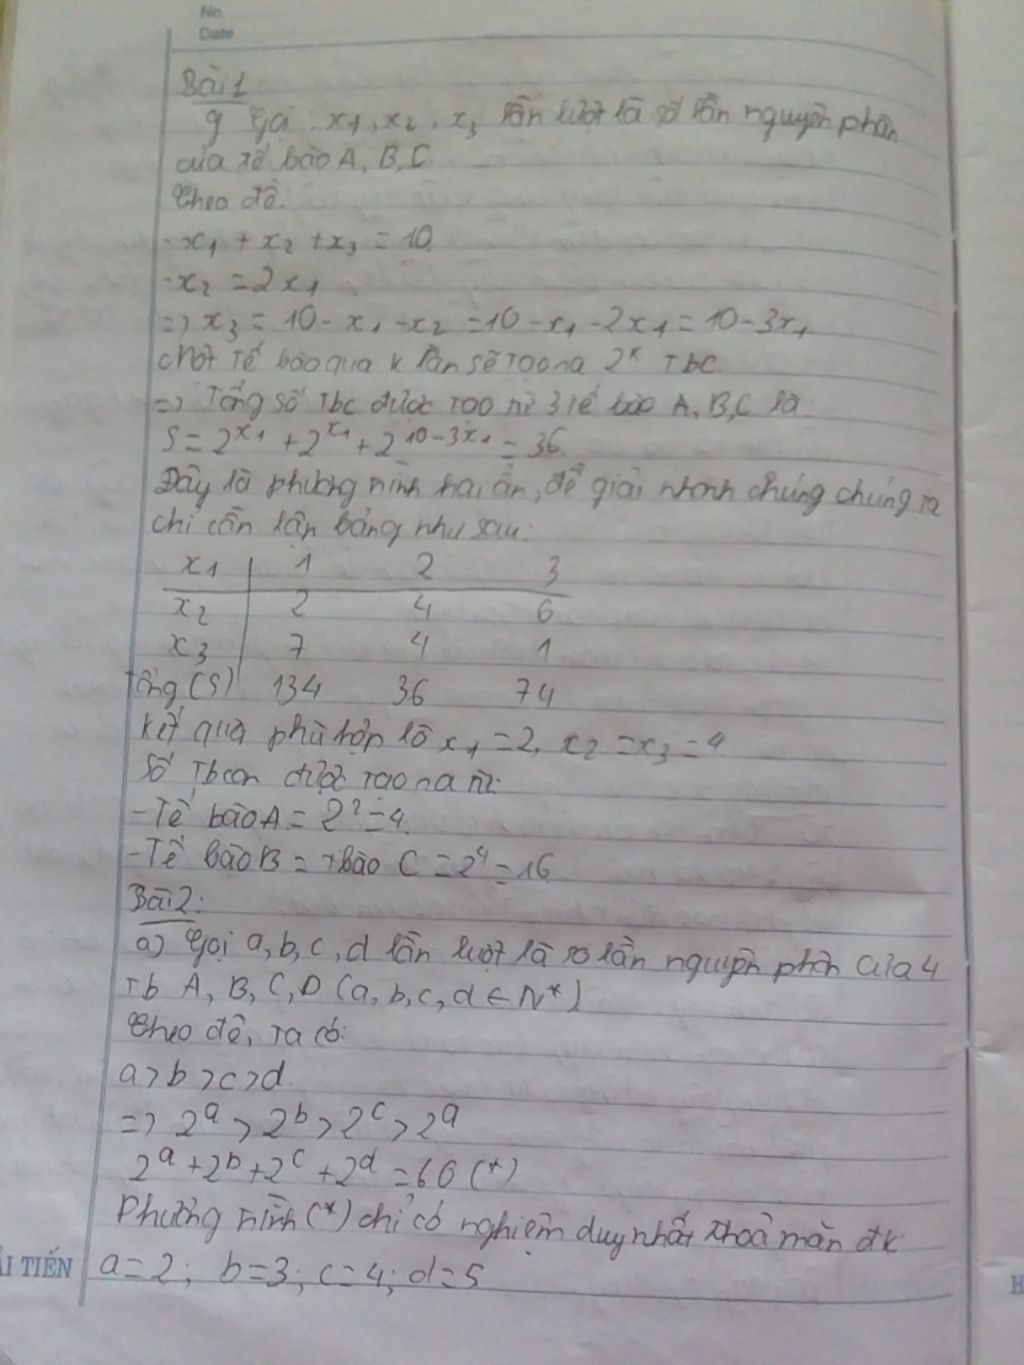 No.
Date
Bài 1:
Gọi: x₁, x₂, x₃ lần lượt là số lần nguyên phân
của tế bào A, B, C
Theo đề.
- x₁ + x₂ + x₃ = 10
- x₂ = 2x₁
=> x₃ = 10 - x₁ - x₂ = 10 - x₁ - 2x₁ = 10 - 3x₁
Một tế bào qua k lần sẽ tạo ra 2ᵏ Tbc
=> Tổng số Tbc được tạo từ 3 tế bào A, B, C là:
S = 2^x₁ + 2^x₁ + 2^10-3x₁ = 36
Đây là phương trình hai ẩn, để giải nhanh chúng chúng ta
chỉ cần lập bảng như sau:
x₁ 1 2 3
x₂ 2 4 6
x₃ 7 4 1
Tổng (S) 134 36 74
Kết quả phù hợp là x₁ = 2, x₂ = x₃ = 4
Số Tbcon được tạo ra từ:
- Tế bào A = 2² = 4
- Tế bào B = tbào C = 2⁴ = 16
Bài 2:
a) Gọi a, b, c, d lần lượt là so lần nguyên phân của 4
Tb A, B, C, D (a, b, c, d ∈ N*)
Theo đề, ta có:
a > b > c > d
=> 2ᵃ > 2ᵇ > 2ᶜ > 2ᵈ
2ᵃ + 2ᵇ + 2ᶜ + 2ᵈ = 60 (*)
Phương trình (*) chỉ có nghiệm duy nhất thoả mãn đk
a = 2; b = 3; c = 4; d = 5
ẢI TIẾN
H